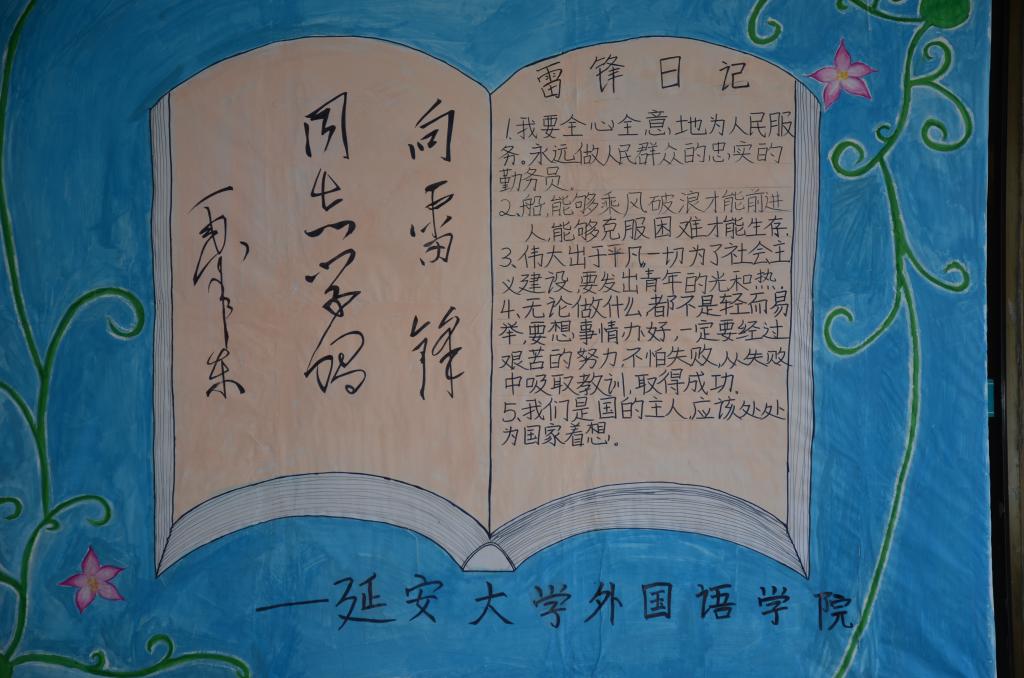 向雷锋
同志学习
毛泽东
雷锋日记
1.我要全心全意地为人民服
务。永远做人民群众的忠实的
勤务员.
2.船,能够乘风破浪才能前进
人,能够克服困难才能生存.
3.伟大出于平凡一切为了社会主
义建设.要发出青年的光和热.
4.无论做什么,都不是轻而易
举,要想事情办好,一定要经过
艰苦的努力,不怕失败,从失败
中吸取教训,取得成功.
5.我们是国的主人,应该处处
为国家着想。
——延安大学外国语学院